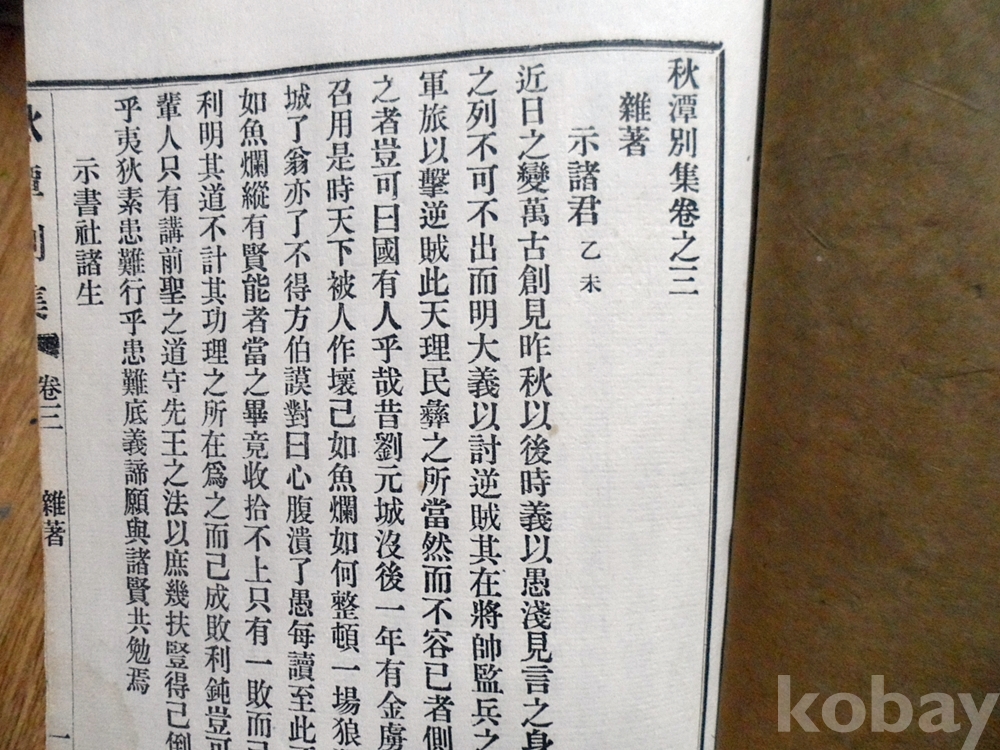 秋潭別集卷之三
雜著
示諸君 乙未
近日之變萬古創見昨秋以後時義以愚淺見言之身
之列不可不出而明大義以討逆賊其在將帥監兵之
軍旅以擊逆賊此天理民彝之所當然而不容已者側
之者豈可曰國有人乎哉昔劉元城沒後一年有金虜
召用是時天下被人作壞已如魚爛如何整頓一場狼
城了翁亦了不得方伯謨對曰心腹潰了愚每讀至此
如魚爛縱有賢能者當之畢竟收拾不上只有一敗而已
利明其道不計其功理之所在爲之而已成敗利鈍豈可
輩人只有講前聖之道守先王之法以庶幾扶豎得已倒
乎夷狄素患難行乎患難底義諦願與諸賢共勉焉
示書社諸生
秋潭別集 卷三 雜著 一
kobay